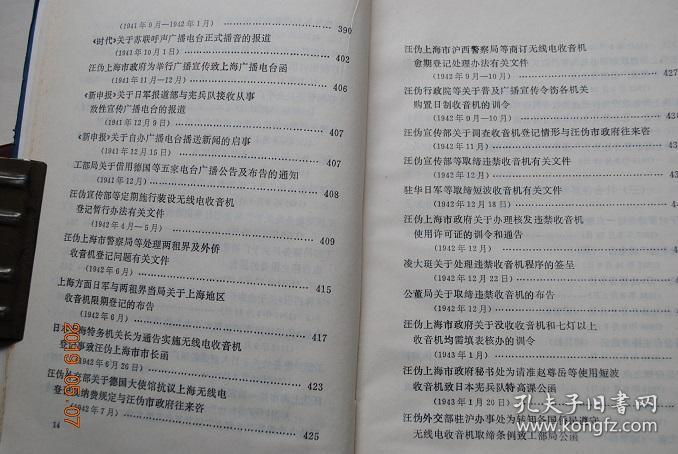 (1941年9月—1942年1月) 390
《时代》关于苏联呼声广播电台正式播音的报道
(1941年10月1日) 402
汪伪上海市政府为举行广播宣传致上海广播电台函
(1941年11月—12月) 406
《新申报》关于日军报道部与宪兵队接收从事
敌性宣传广播电台的报道
(1941年12月9日) 407
《新申报》关于自办广播电台播送新闻的启事
(1941年12月15日) 407
工部局关于借用德国等五家电台广播公告及布告的通知
408
汪伪宣传部等定期施行装设无线电收音机
登记暂行办法有关文件
(1942年4月—5月) 409
汪伪上海市警察局等处理两租界及外侨
收音机登记问题有关文件
(1942年6月) 415
上海方面日军与两租界当局关于上海地区
收音机限期登记的布告
417
日本上海特务机关长为通告实施无线电收音机
登记事致汪伪上海市市长函
(1942年6月26日) 423
汪伪外交部关于德国大使馆抗议上海无线电
登记须纳费规定与汪伪市政府往来咨
(1942年7月) 425
14
汪伪上海市沪西警察局等商订无线电收音机
愈期登记处理办法有关文件
(1942年9月—10月) 427
汪伪行政院等关于普及广播宣传令饬各机关
购置日制收音机的训令
(1942年9月—10月)
汪伪宣传部关于调查收音机登记情形与汪伪市政府往来咨
(1942年11月)
汪伪宣传部等取缔违禁收音机有关文件
(1942年12月)
驻华日军等取缔短波收音机有关文件
(1942年12月18日)
汪伪上海市政府关于办理核发违禁收音机
使用许可证的训令和通告
(1942年12月)
凌大珽关于处理违禁收音机程序的签呈
(1942年12月22日)
公董局关于取缔违禁收音机的布告
(1942年12月)
汪伪上海市政府关于没收收音机和七灯以上
收音机均需填表核办的训令
(1943年1月)
汪伪上海市政府秘书处为请准赵尊岳等使用短波
收音机致日本宪兵队特高课公函
(1943年1月20日)
汪伪外交部驻沪办事处为转知各国侨民遵守
无线电收音机取缔条例致工部局公函
2019.09.07
孔夫子旧书网
kongfz.com